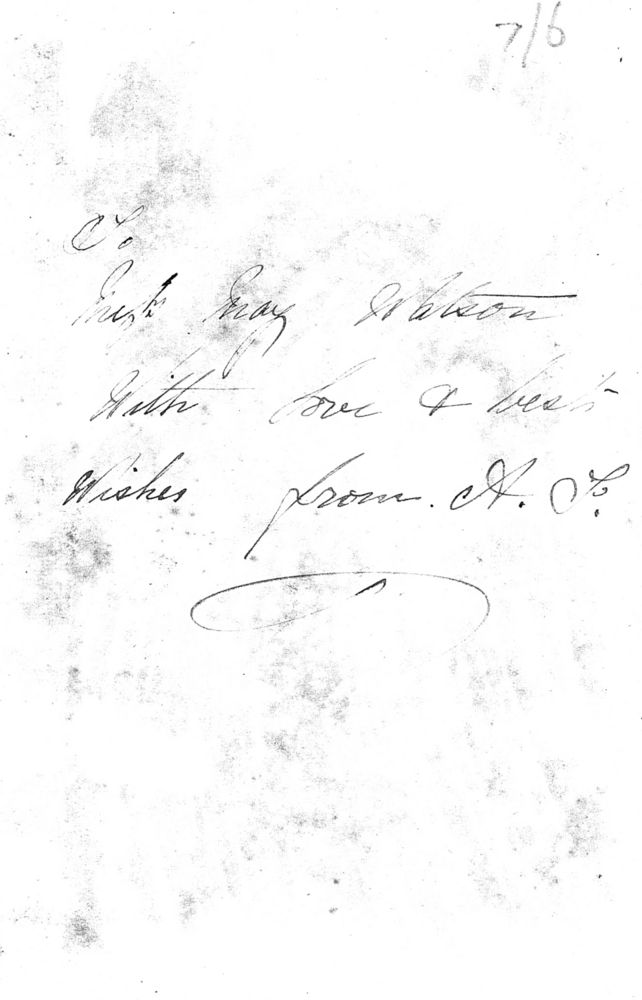 7/6
To
Miss May Watson
With love & best
Wishes from. A.